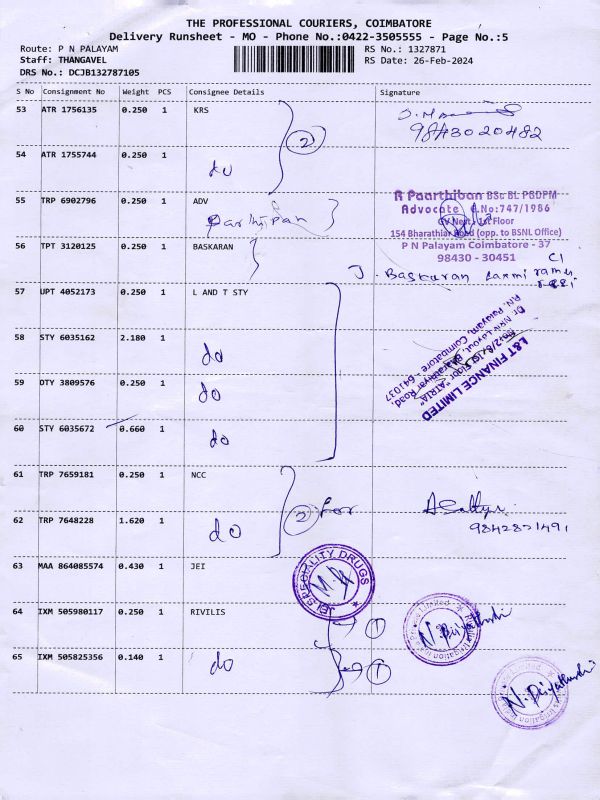 THE PROFESSIONAL COURIERS, COIMBATORE
Delivery Runsheet - MO - Phone No.:0422-3505555 - Page No.:5
Route: P N PALAYAM RS No.: 1327871
Staff: THANGAVEL RS Date: 26-Feb-2024
DRS No.: DCJB132787105
S No Consignment No Weight PCS Consignee Details Signature
53 ATR 1756135 0.250 1 KRS
2
9843020482
54 ATR 1755744 0.250 1
do
55 TRP 6902796 0.250 1 ADV
Parthipan
R Paarthiban BSc BL PGDPM
Advocate E.No:747/1986
1st Floor
154 Bharathiar Road (opp. to BSNL Office)
P N Palayam Coimbatore - 37
98430 - 30451
56 TPT 3120125 0.250 1 BASKARAN
J. Baskaran Laxmi
57 UPT 4052173 0.250 1 L AND T STY
58 STY 6035162 2.180 1
do
L&T FINANCE LIMITED
"ATRIA"
Layout, Bharathiyar Road,
P.N. Palayam, Coimbatore - 641037
59 DTY 3809576 0.250 1
do
60 STY 6035672 0.660 1
do
61 TRP 7659181 0.250 1 NCC
2 for
9842821491
62 TRP 7648228 1.620 1
do
63 MAA 864085574 0.430 1 JEI
JEI SPECIALITY DRUGS
64 IXM 505980117 0.250 1 RIVILIS
1
65 IXM 505825356 0.140 1
do
1